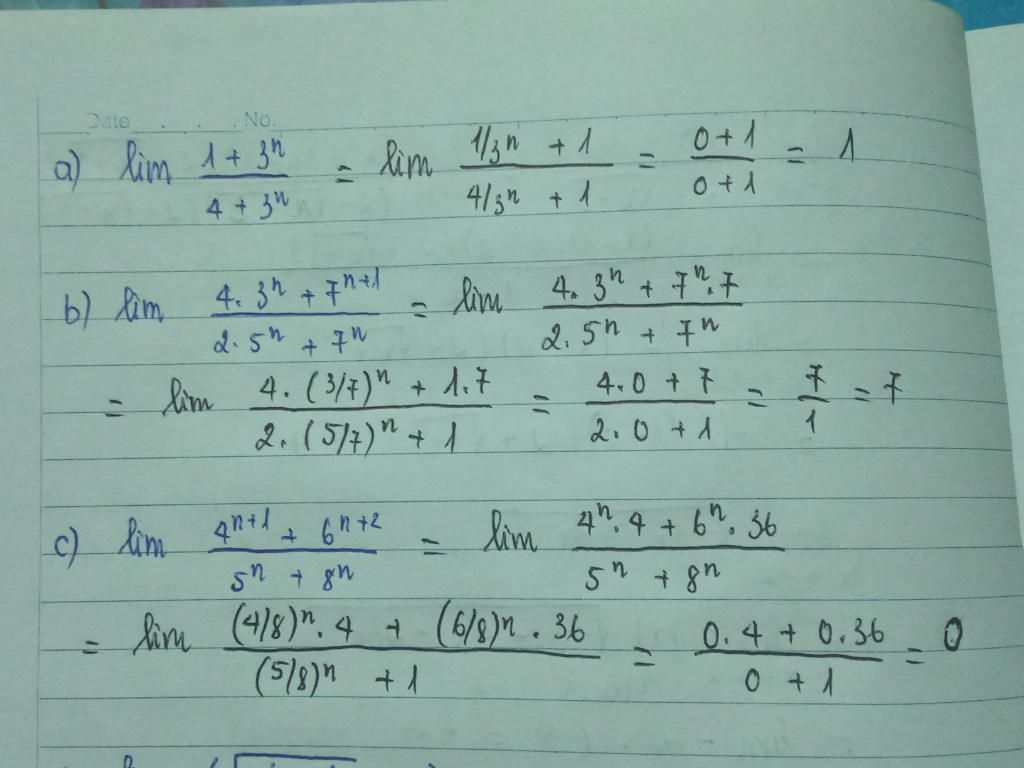 Date . . . No.
a) lim (1 + 3^n)/(4 + 3^n) = lim (1/3^n + 1)/(4/3^n + 1) = (0 + 1)/(0 + 1) = 1
b) lim (4. 3^n + 7^(n+1))/(2. 5^n + 7^n) = lim (4. 3^n + 7^n. 7)/(2. 5^n + 7^n)
= lim (4. (3/7)^n + 1.7)/(2. (5/7)^n + 1) = (4.0 + 7)/(2.0 + 1) = 7/1 = 7
c) lim (4^(n+1) + 6^(n+2))/(5^n + 8^n) = lim (4^n. 4 + 6^n. 36)/(5^n + 8^n)
= lim ((4/8)^n. 4 + (6/8)^n. 36)/((5/8)^n + 1) = (0.4 + 0.36)/(0 + 1) = 0